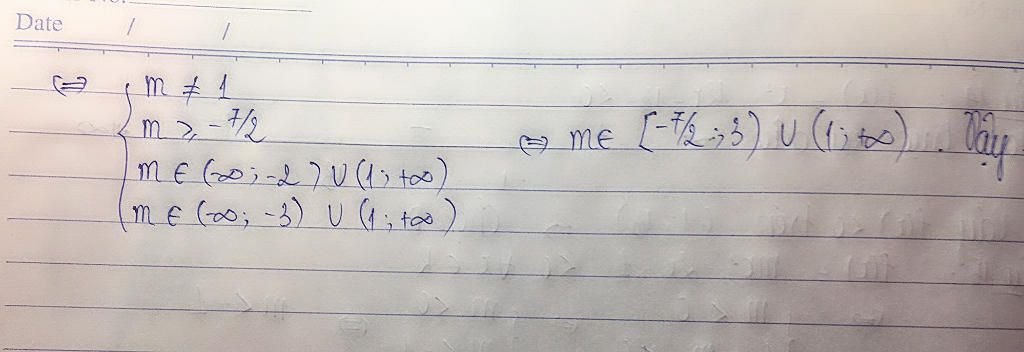 Date / /
⇔ { m ≠ 1
m ≥ -7/2
m ∈ (-∞; -2) ∪ (1; +∞)
m ∈ (-∞; -3) ∪ (1; +∞)
⇔ m ∈ [-7/2; 3) ∪ (1; +∞). Vậy